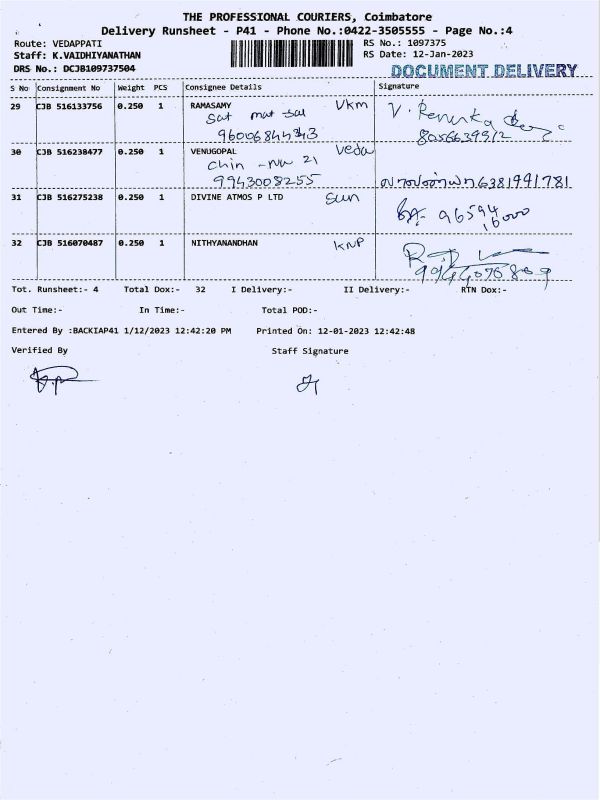 THE PROFESSIONAL COURIERS, Coimbatore
Delivery Runsheet - P41 - Phone No.:0422-3505555 - Page No.:4
Route: VEDAPPATI RS No.: 1097375
Staff: K.VAIDHIYANATHAN RS Date: 12-Jan-2023
DRS No.: DCJB109737504 DOCUMENT DELIVERY
S No Consignment No Weight PCS Consignee Details Signature
29 CJB 516133756 0.250 1 RAMASAMY Vkm V. Renuka
Sat mat sal
96006844343 8056639512
30 CJB 516238477 0.250 1 VENUGOPAL Veda
chin - Nu 21
9943008255 6381991781
31 CJB 516275238 0.250 1 DIVINE ATMOS P LTD Sun 96594
16000
32 CJB 516070487 0.250 1 NITHYANANDHAN KNP
Tot. Runsheet:- 4 Total Dox:- 32 I Delivery:- II Delivery:- RTN Dox:-
Out Time:- In Time:- Total POD:-
Entered By :BACKIAP41 1/12/2023 12:42:20 PM Printed On: 12-01-2023 12:42:48
Verified By Staff Signature